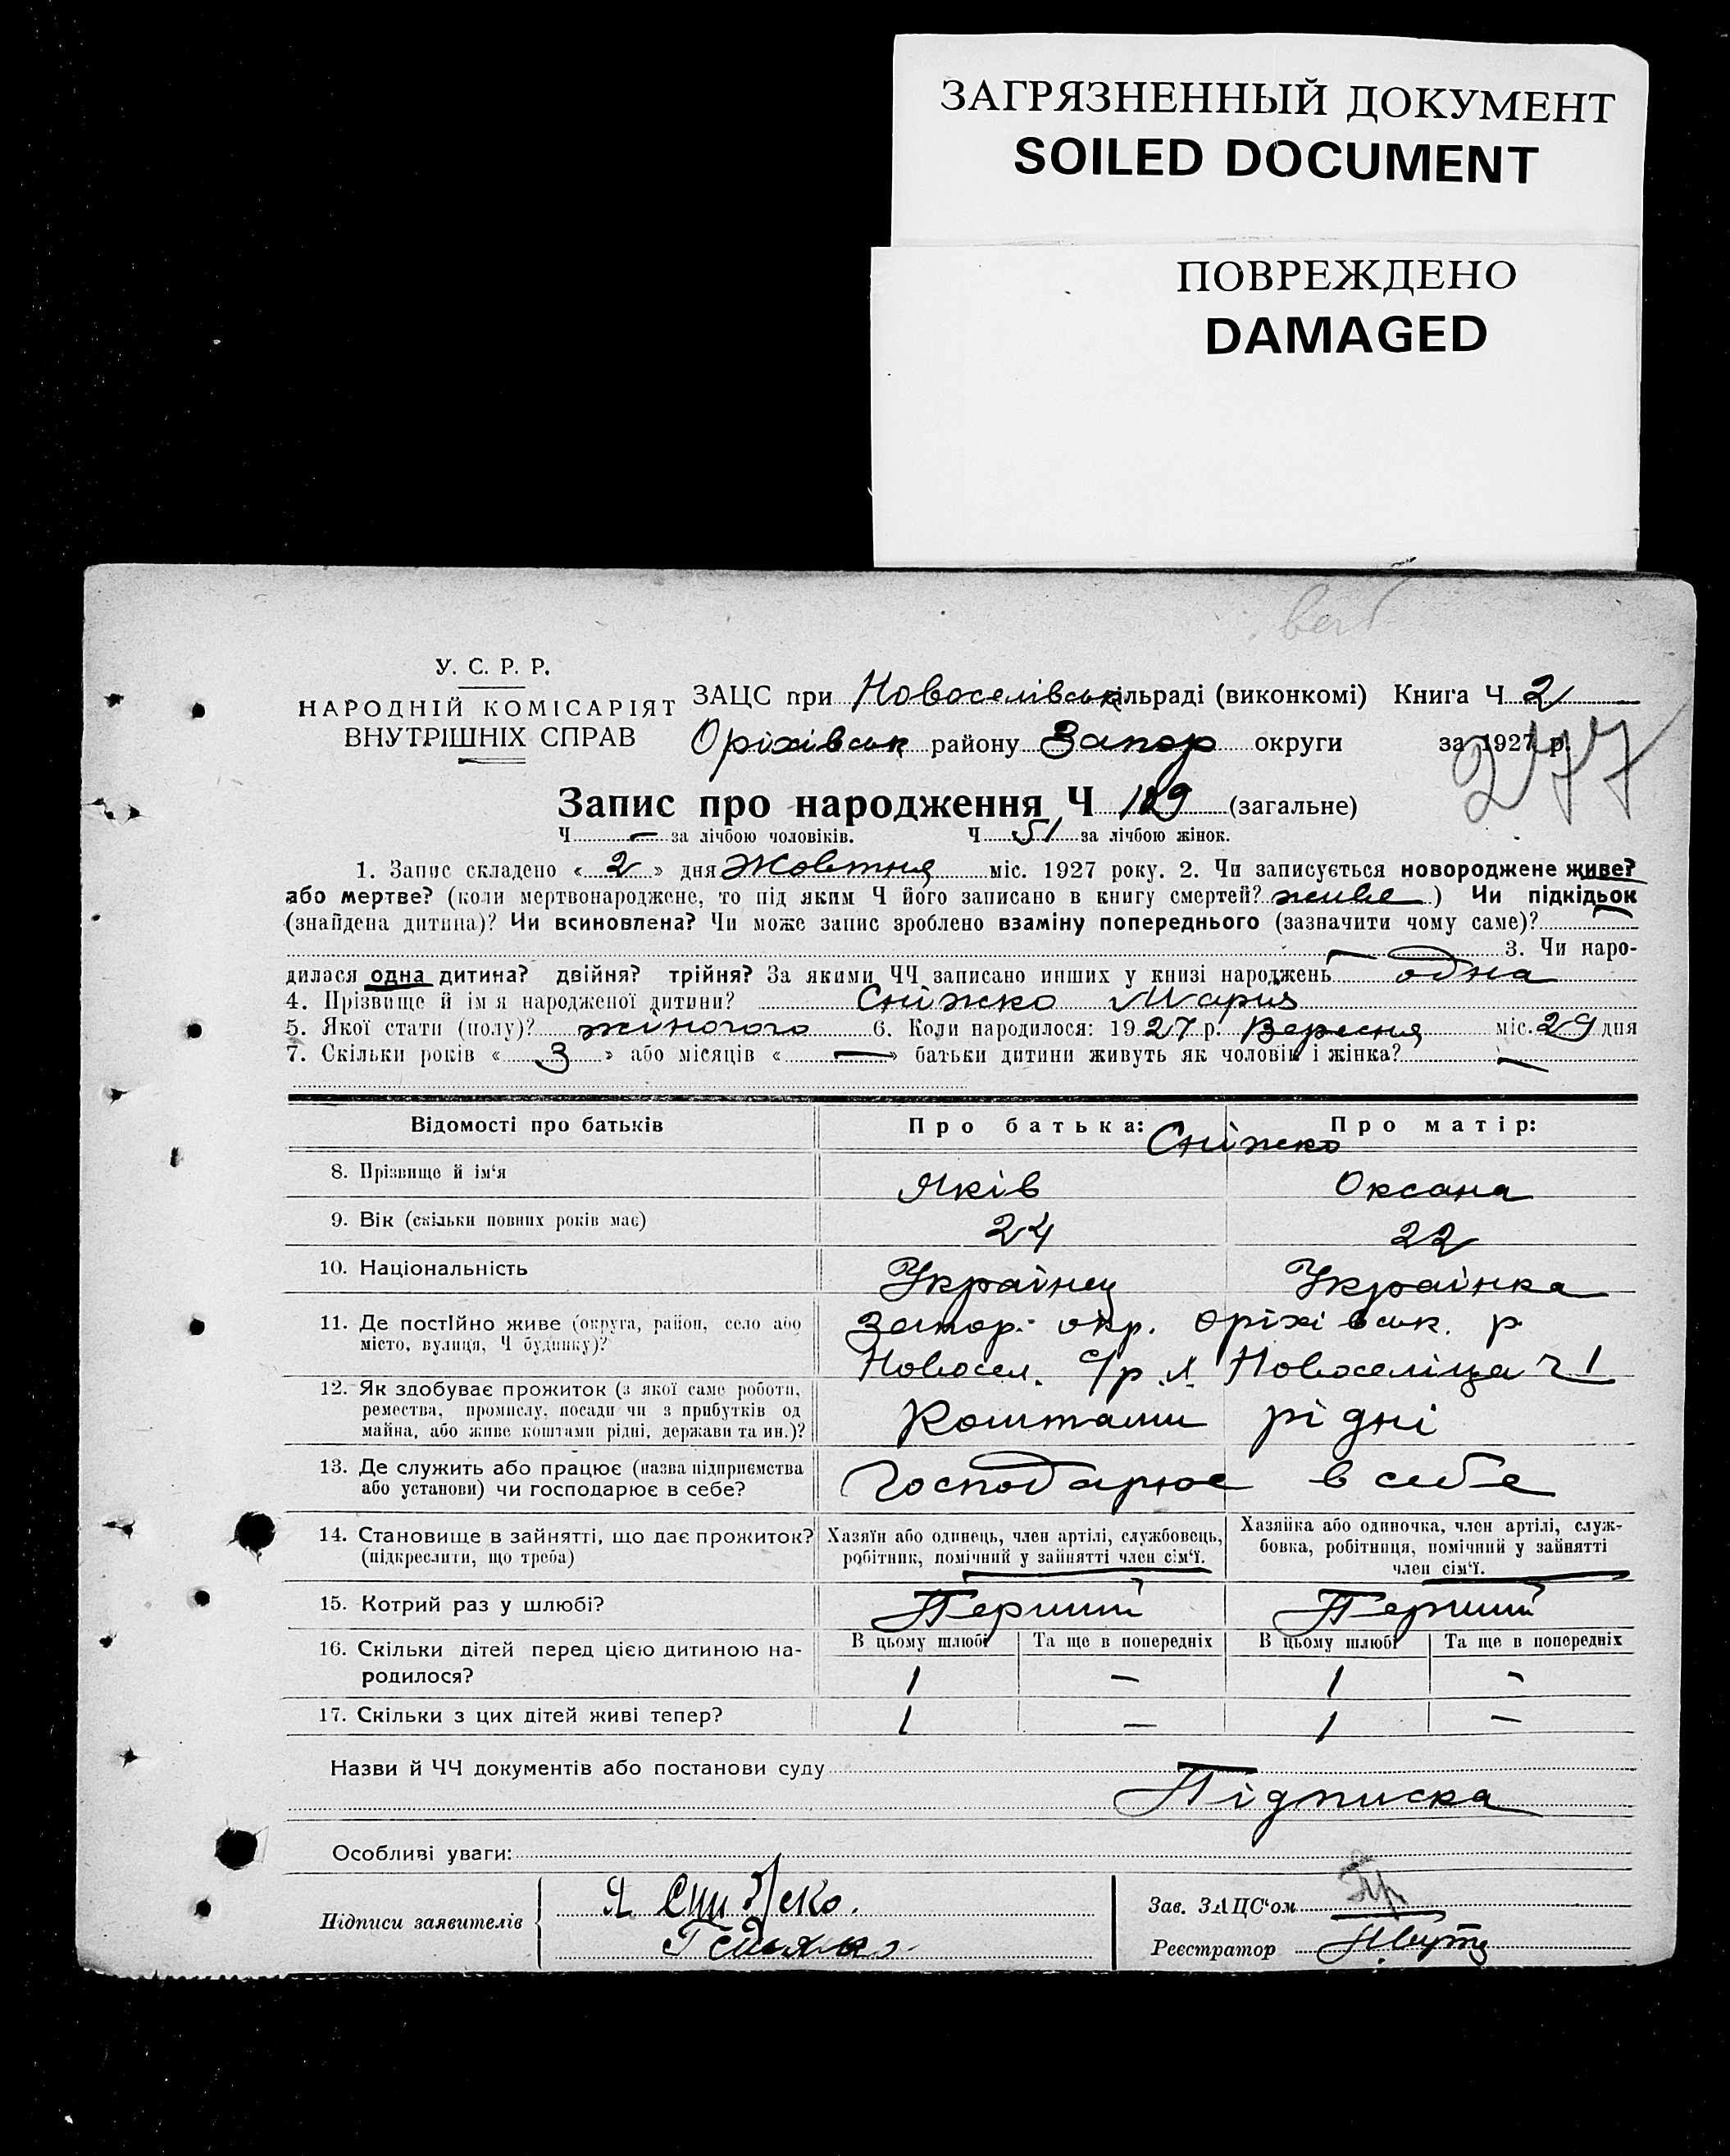 ЗАГРЯЗНЕННЫЙ ДОКУМЕНТ
SOILED DOCUMENT
ПОВРЕЖДЕНО
DAMAGED
У. С. Р. Р.
НАРОДНІЙ КОМІСАРІЯТ
ВНУТРІШНІХ СПРАВ
ЗАЦС при Новоселівськ сільраді (виконкомі) Книга Ч 2
Оріхівськ району Запор округи за 1927 р.
277
Запис про народження Ч 129 (загальне)
Ч — за лічбою чоловіків. Ч 51 за лічбою жінок.
1. Запис складено « 2 » дня Жовтня міс. 1927 року. 2. Чи записується новороджене живе?
або мертве? (коли мертвонароджене, то під яким Ч його записано в книгу смертей? живе ) Чи підкідьок
(знайдена дитина)? Чи всиновлена? Чи може запис зроблено взаміну попереднього (зазначити чому саме)? —
— 3. Чи наро-
дилася одна дитина? двійня? трійня? За якими ЧЧ записано инших у книзі народжень одна
4. Прізвище й ім я народженої дитини? Сніжко Марія
5. Якої стати (полу)? жіночого 6. Коли народилося: 1927 р. Вересня міс. 29 дня
7. Скільки років « 3 » або місяців « — » батьки дитини живуть як чоловік і жінка? —
Відомості про батьків Про батька: Про матір:
Сніжко
8. Прізвище й ім'я Яків Оксана
9. Вік (скільки повних років має) 24 22
10. Національність Українец Українка
11. Де постійно живе (округа, район, село або Запор. окр. Оріхівськ. р
місто, вулиця, Ч будинку)? Новосел. с/р Новоселіца Ч 1
12. Як здобуває прожиток (з якої саме роботи,
ремества, промислу, посади чи з прибутків од Коштами рідні
майна, або живе коштами рідні, держави та ин.)?
13. Де служить або працює (назва підприємства Господарює в себе
або установи) чи господарює в себе?
14. Становище в зайнятті, що дає прожиток? Хазяїн або одинець, член артілі, службовець, Хазяйка або одиночка, член артілі, служ-
(підкреслити, що треба) робітник, помічний у зайнятті член сім'ї. бовка, робітниця, помічний у зайнятті
член сім'ї.
15. Котрий раз у шлюбі? Перший Перший
16. Скільки дітей перед цією дитиною на- В цьому шлюбі Та ще в попередніх В цьому шлюбі Та ще в попередніх
родилося? 1 — 1 —
17. Скільки з цих дітей живі тепер? 1 — 1 —
Назви й ЧЧ документів або постанови суду
Підписка
Особливі уваги:
Підписи заявителів Я Сніжко.
Зав. ЗАЦС'ом
Реєстратор